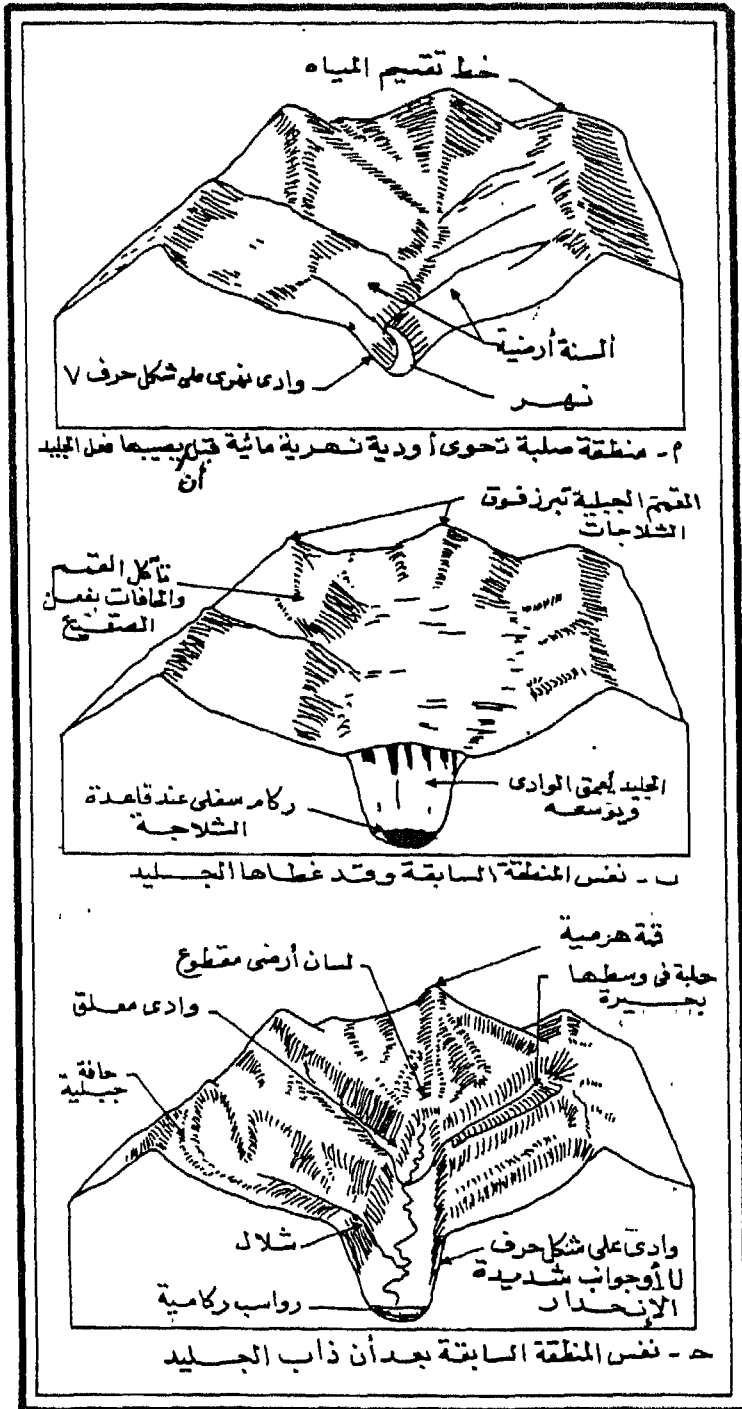 خط تقسيم المياه
ألسنة أرضية
وادى نهرى على شكل حرف V
نهر
م - منطقة صلبة تحوى أودية نهرية مائية قبل أن يصيبها فعل الجليد
القمم الجبلية تبرز فوق
الثلاجات
تآكل القمم
والحافات بفعل
الصقيع
الجليد يعمق الوادى
ويوسعه
ركام سفلى عند قاعدة
الثلاجة
ب - نفس المنطقة السابقة وقد غطاها الجليد
قمة هرمية
لسان أرضى مقطوع
حلبة فى وسطها
بحيرة
وادى معلق
حافة
جبلية
شلال
وادى على شكل حرف
U أو جوانب شديدة
الإنحدار
رواسب ركامية
حـ - نفس المنطقة السابقة بعد أن ذاب الجليد